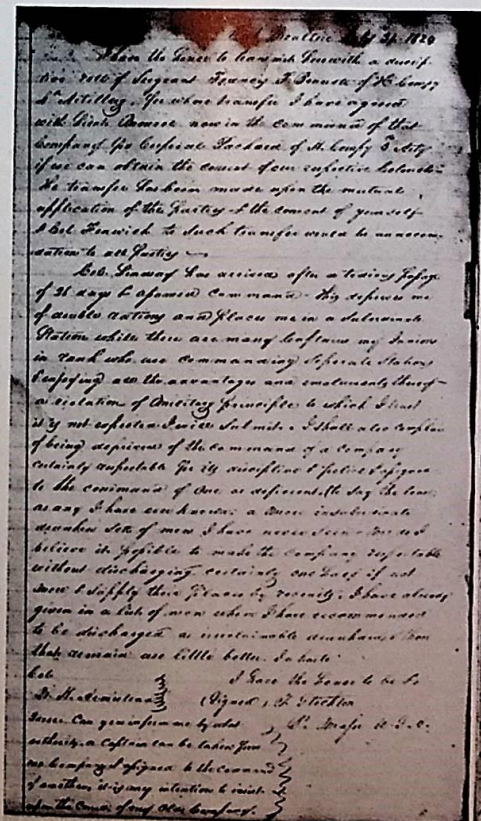 1820
I have the honor to transmit herewith a descrip-
tive roll of Sergeant Francis F. Bennett of H Compy
Artillery. For whose transfer I have agreed
with now in the command of that
Company for Corporal Packard of H. Compy 3 Arty
if we can obtain the consent of our respective Colonels
The transfer has been made upon the mutual
application of the parties & the consent of yourself
& Col. Fenwick to such transfer would be
to all parties
Col. Lindsay has arrived after a tedious passage
of 26 days & assumed command. This deprives me
of double rations and places me in a subordinate
Station while there are many Captains my Juniors
in rank who are commanding separate Stations
& enjoying all the advantages and emoluments thereof
a violation of Military principle to which I trust
it is not expected I will submit. I shall also complain
of being deprived of the command of a Company
certainly respectable for its discipline & police & assigned
to the command of one as deficient (to say the least)
as any I have ever known: a more insubordinate
drunken set of men I have never seen
believe it possible to made the Company respectable
without discharging certainly one half if not
more & supply their places by recruits. I have already
given in a list of men whom I have recommended
to be discharged as drunkards & those
that remain are little better. In haste
Col. I have the honor to be Sr
(Signed)
Can you inform me by what
authority a Captain can be taken from
one Company & assigned to the command
of another. is any intention to
upon the Comd. of my Old Company.